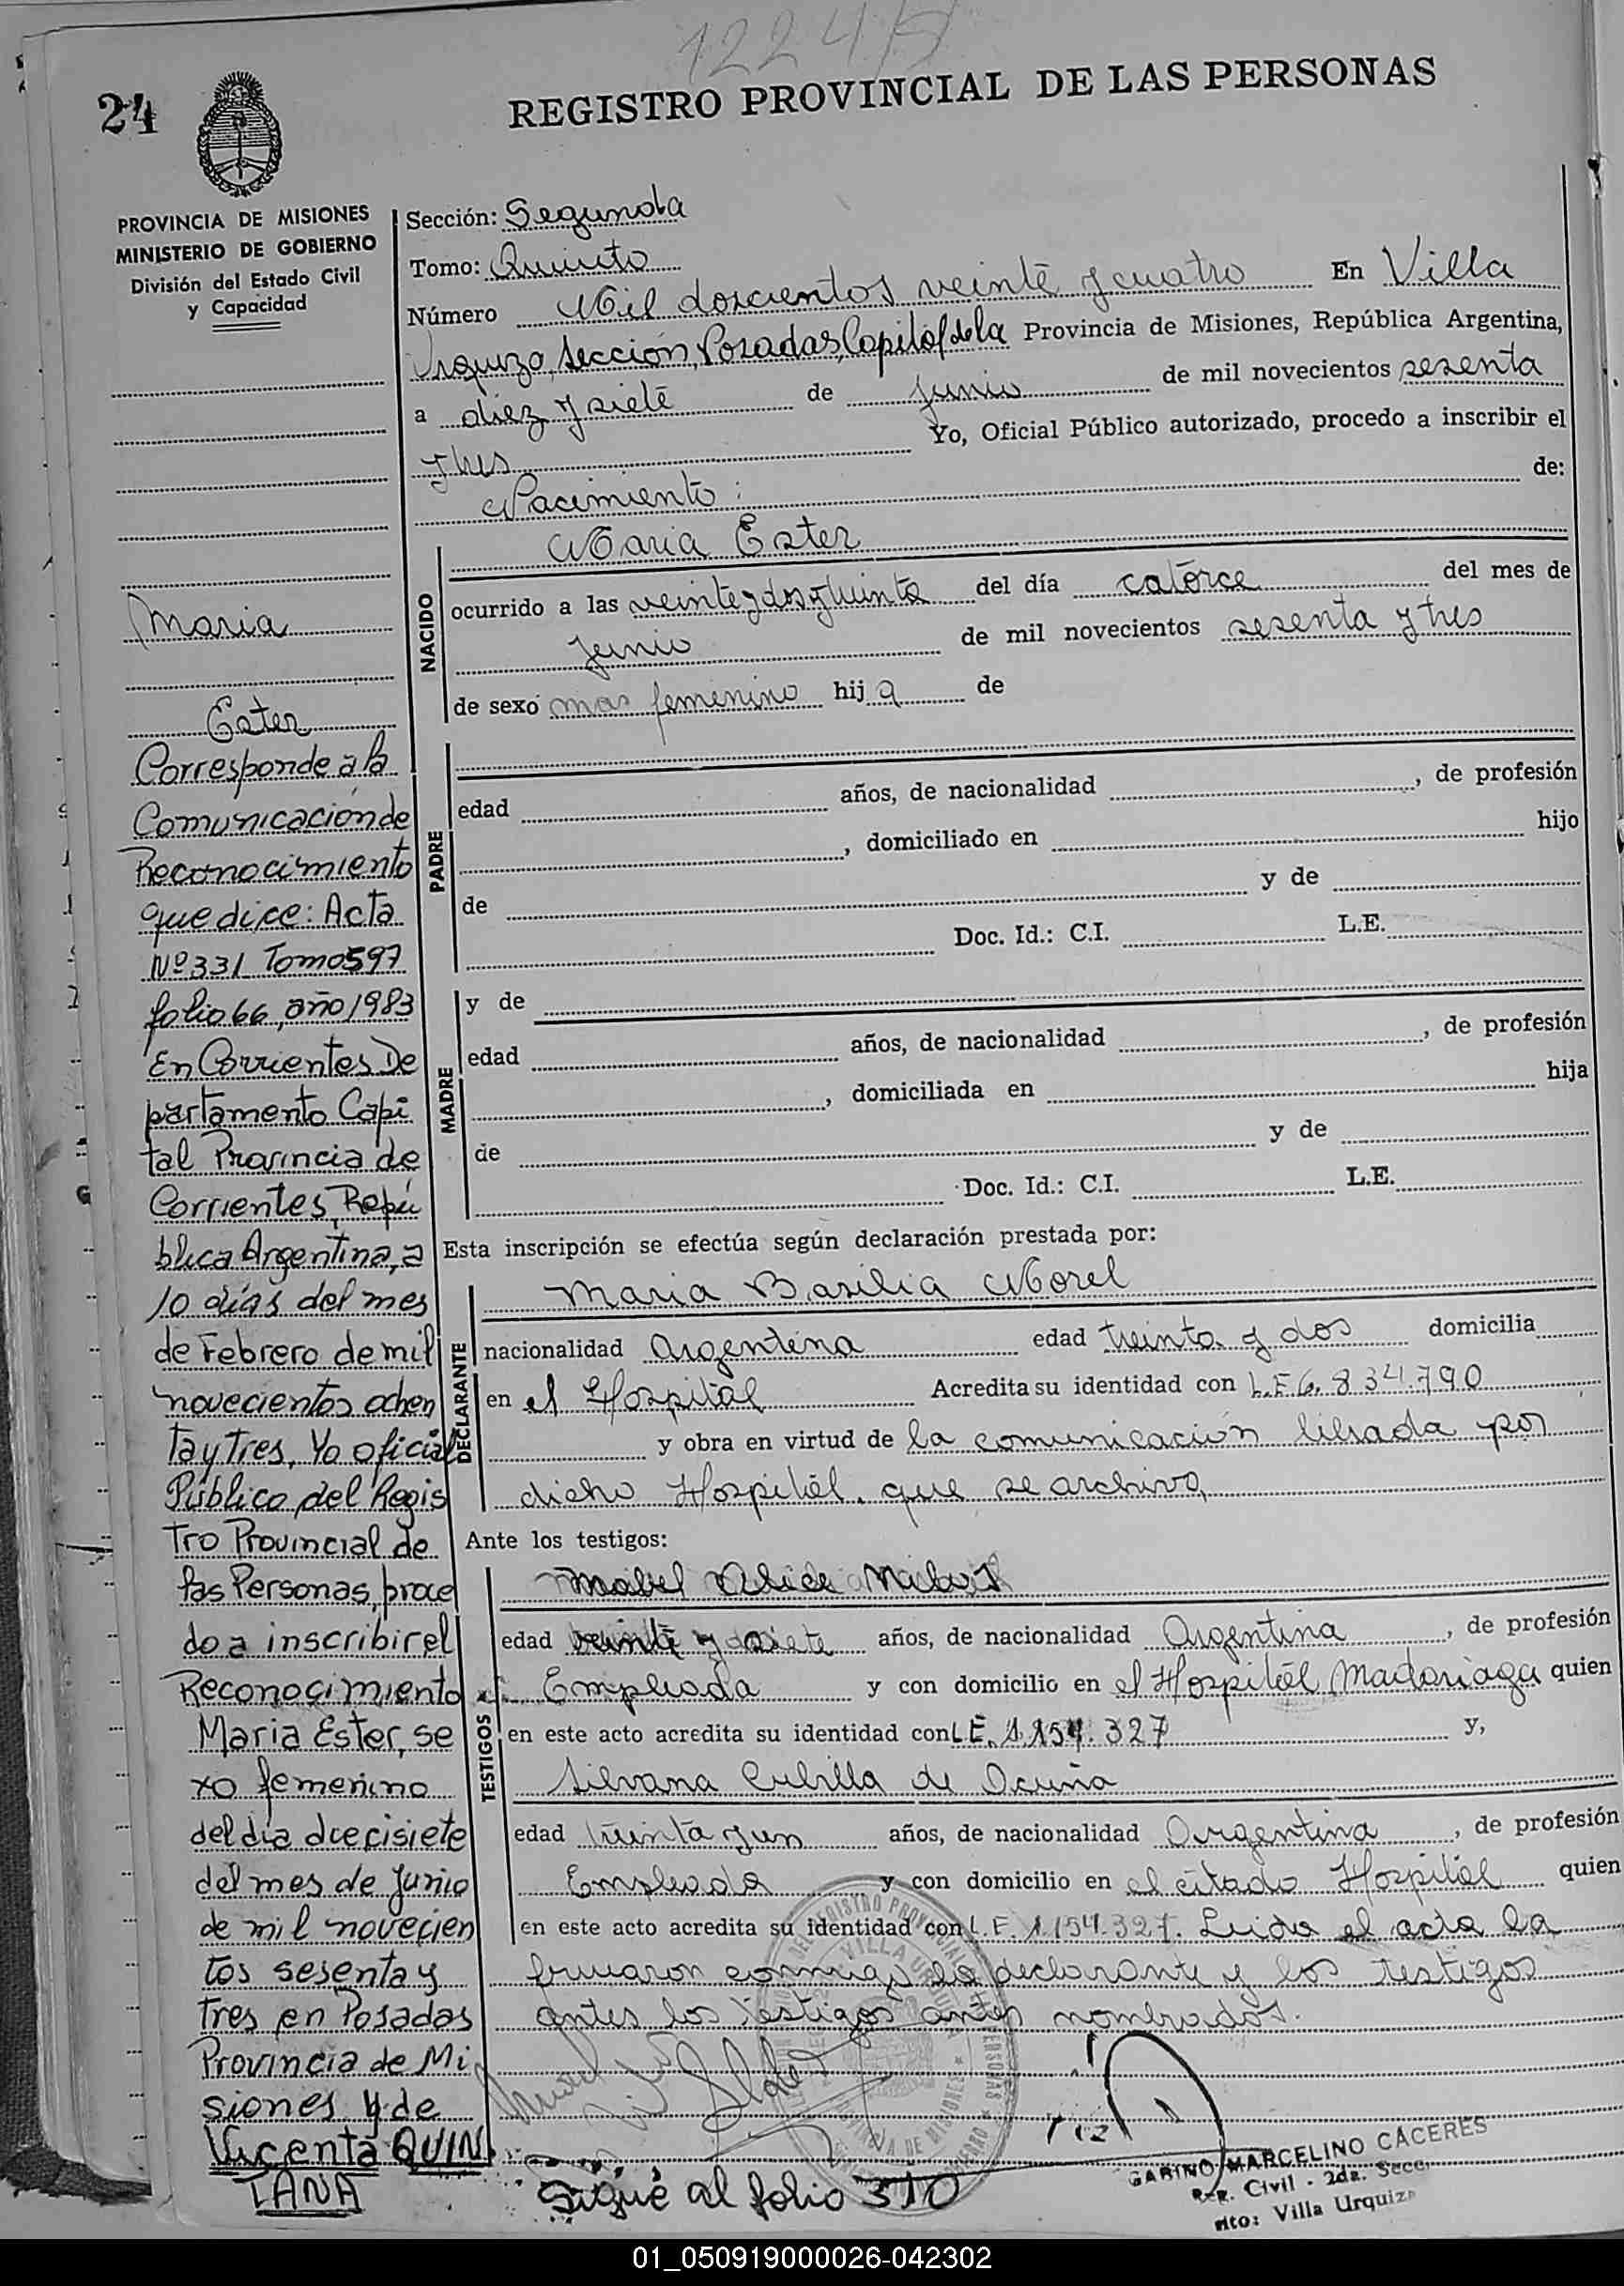 1224/5
24
REGISTRO PROVINCIAL DE LAS PERSONAS
PROVINCIA DE MISIONES
MINISTERIO DE GOBIERNO
División del Estado Civil
y Capacidad
Sección: Segunda
Tomo: Quinto
Número Mil doscientos veinte y cuatro En Villa
Urquiza, Sección, Posadas, Capital de la Provincia de Misiones, República Argentina,
a diez y siete de junio de mil novecientos sesenta
y tres Yo, Oficial Público autorizado, procedo a inscribir el
Nacimiento: de:
NACIDO
Maria Ester
ocurrido a las veinte y dos y treinta del día catorce del mes de
junio de mil novecientos sesenta y tres
de sexo mas femenino hija de
PADRE
edad años, de nacionalidad , de profesión
, domiciliado en hijo
de y de
Doc. Id.: C.I. L.E.
MADRE
y de
edad años, de nacionalidad , de profesión
, domiciliada en hija
de y de
Doc. Id.: C.I. L.E.
Esta inscripción se efectúa según declaración prestada por:
DECLARANTE
Maria Basilia Morel
nacionalidad Argentina edad treinta y dos domicilia
en el Hospital Acredita su identidad con L.E 6.834.790
y obra en virtud de la comunicación librada por
dicho Hospital, que se archiva
Ante los testigos:
TESTIGOS
Mabel Alice
edad veinte y siete años, de nacionalidad Argentina, de profesión
Empleada y con domicilio en el Hospital Madariaga quien
en este acto acredita su identidad con L.E. 1.154.327 y,
Silvana Cubilla de Acuña
edad treinta y un años, de nacionalidad Argentina, de profesión
Empleada y con domicilio en el citado Hospital quien
en este acto acredita su identidad con L.E. 1.154.327. Leida el acta la
firmaron conmigo la declarante y los testigos
antes los testigos antes nombrados.
GABINO MARCELINO CACERES
Civil - 2da. Secc.
Villa Urquiza
Sigue al folio 310
Maria
Ester
Corresponde a la
Comunicación de
Reconocimiento
que dice: Acta
Nº 331 Tomo 597
folio 66, año 1983
En Corrientes De
partamento Capi
tal Provincia de
Corrientes, Repú
blica Argentina, a
10 días del mes
de Febrero de mil
novecientos ochen
ta y tres, Yo oficial
Público del Regis
tro Provincial de
las Personas, proce
do a inscribir el
Reconocimiento
Maria Ester, se
xo femenino
del día diecisiete
del mes de Junio
de mil novecien
tos sesenta y
tres en Posadas
Provincia de Mi
siones y de
Vicenta QUIN
TANA
01_050919000026-042302